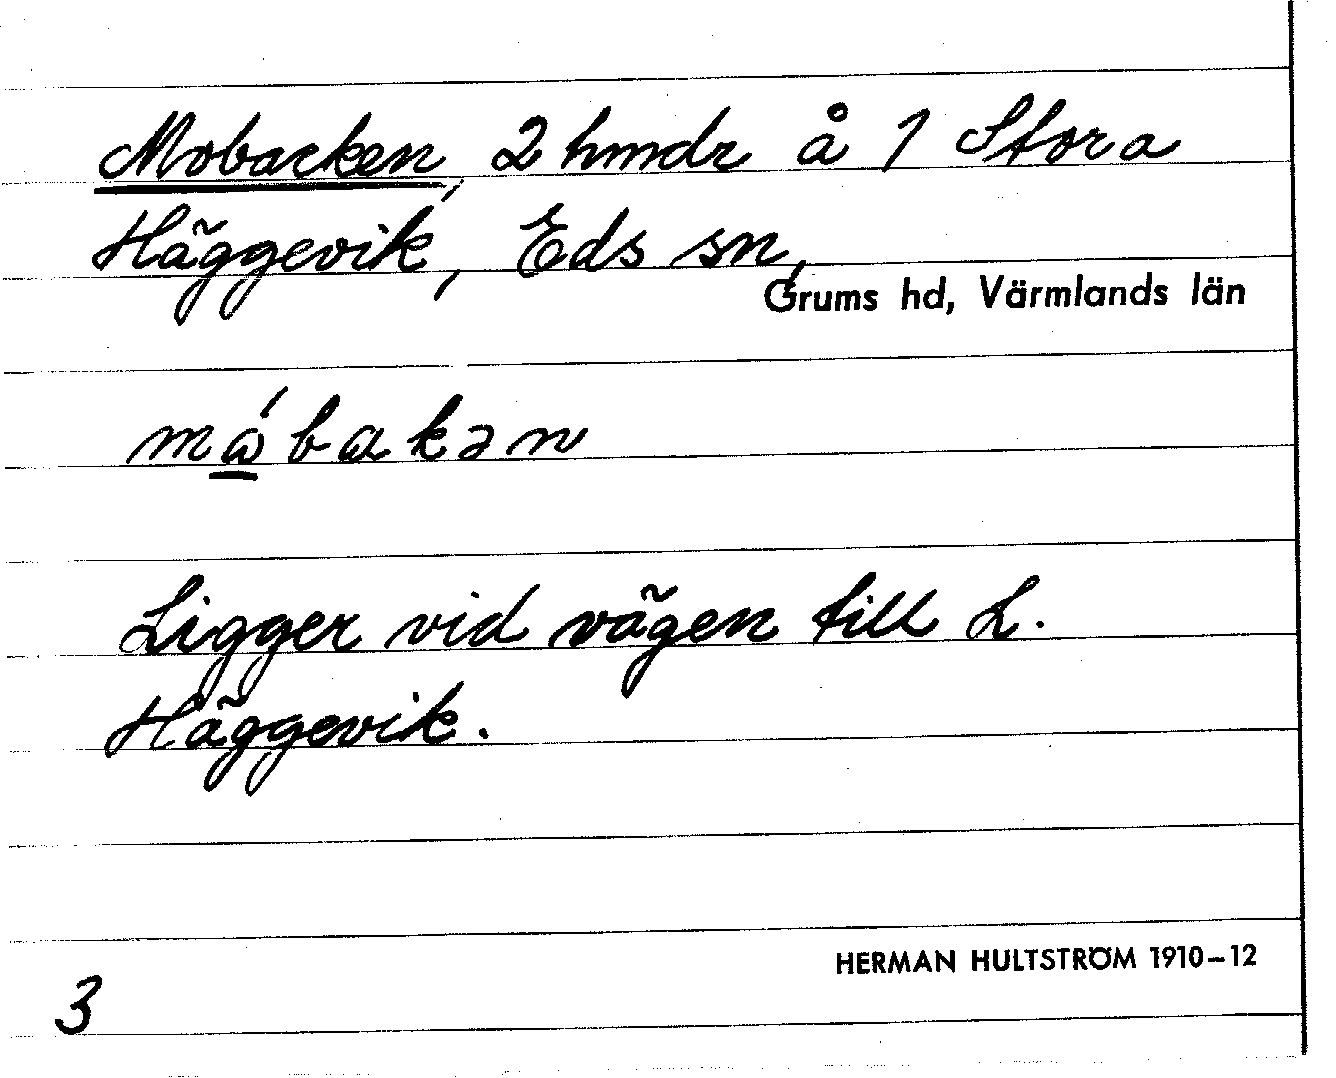 Mobacken, 2 hmdr å 1 Stora
Häggevik, Eds sn,
Grums hd, Värmlands län
mábakən
Ligger vid vägen till L.
Häggevik.
HERMAN HULTSTRÖM 1910–12
3